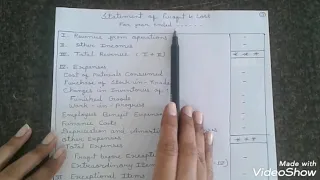 Statement of Profit & Loss
For year ended ----------
I. Revenue from operations
II. Other Incomes
III. Total Revenue: (I + II)
IV. Expenses
Cost of Materials Consumed
Purchase of Stock-in-Trade
Changes in Inventories of :
Finished Goods
Work-in-progress
Employees Benefit Expenses
Finance Costs
Depreciation and
Other
Total Expenses
Profit before Exceptional
Extraordinary Items
Made with
VideoShow